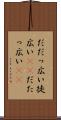 だだっ広い徒
広いだた
っ広い